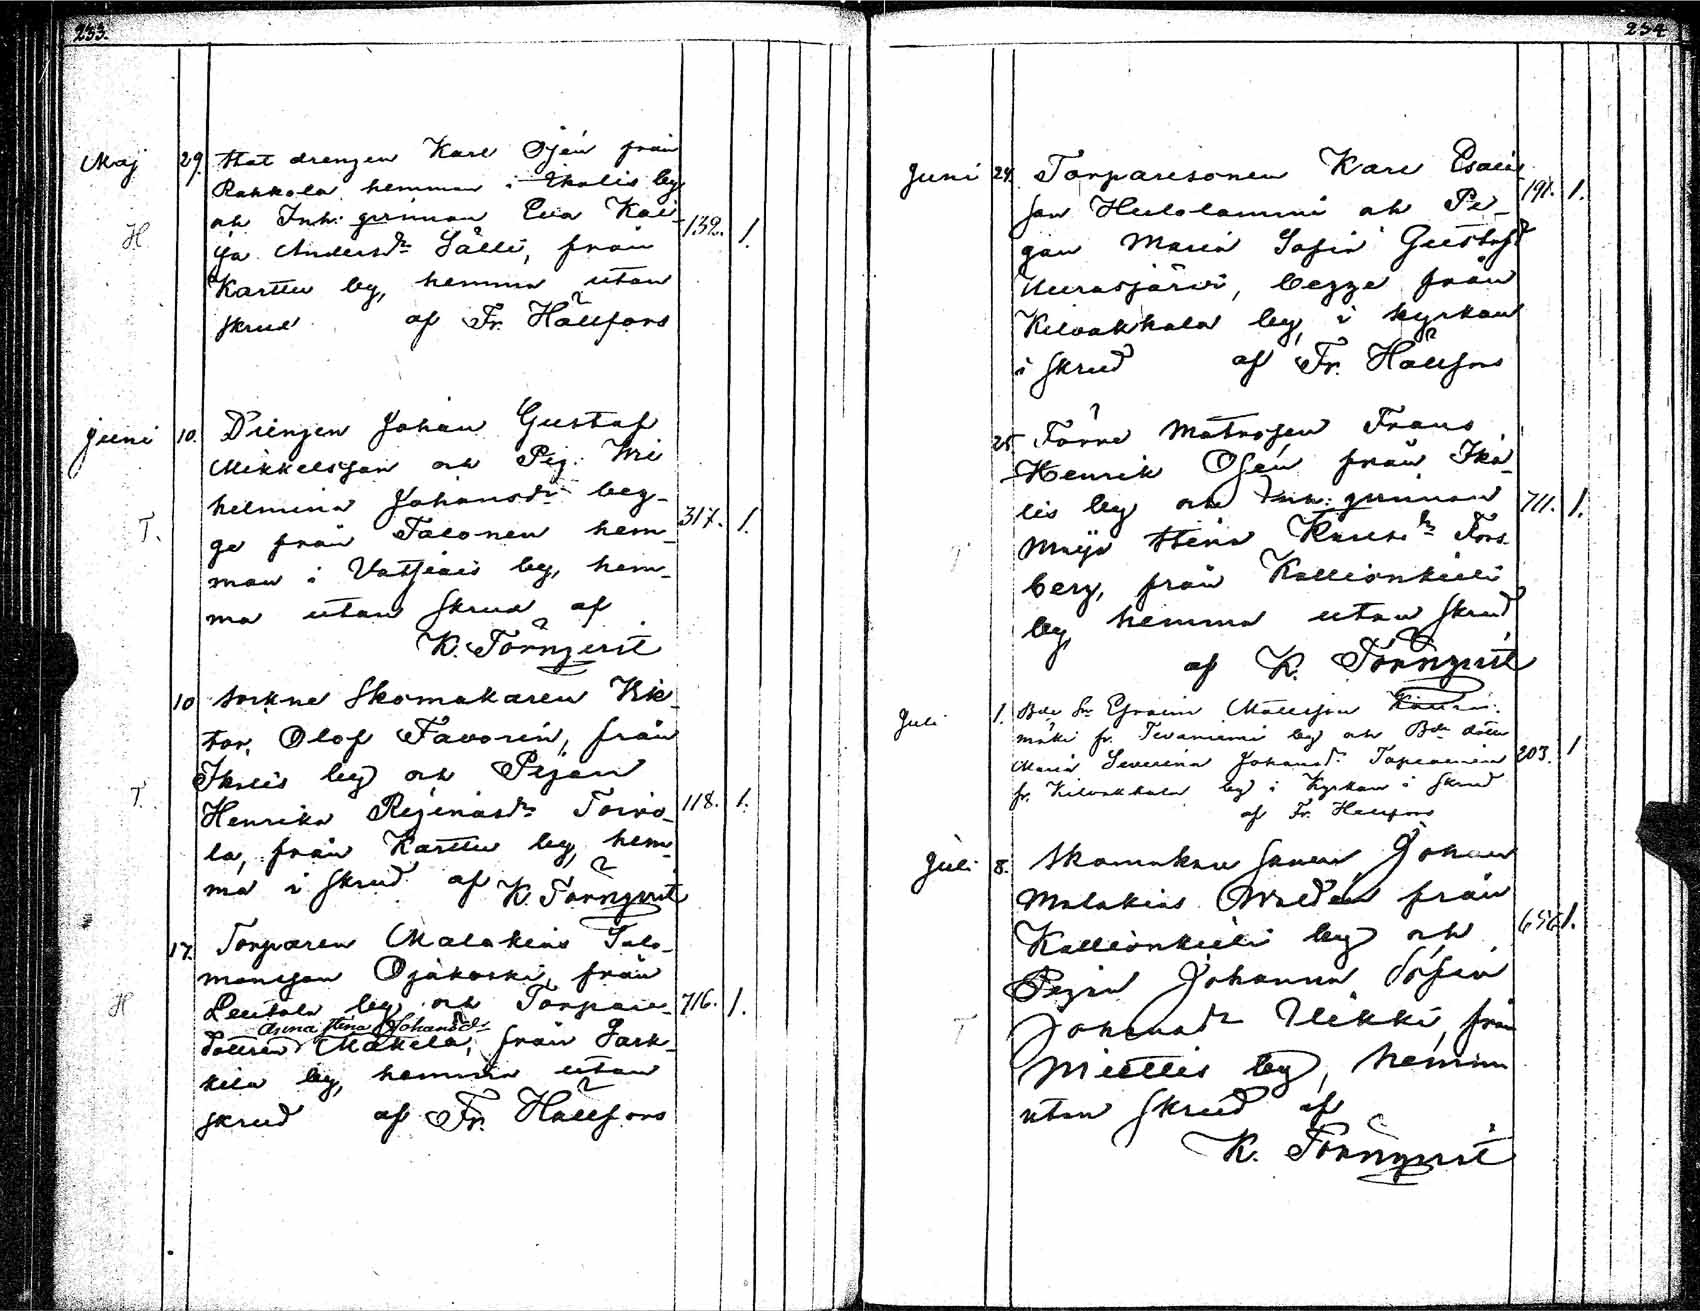 233.
Maj 29. Stat drengen Karl Öjén från
Rahkola hemman i Ikalis by
och Inh: qvinnan Eva Kai-
H. sa Andersdr Sälli, från 132. 1.
Karttu by, hemma utan
skrud af Fr. Hällfors
Juni 10. Drengen Johan Gustaf
Mikkelsson och Pig. Wil
helmina Johansdr beg-
T. ge från Talonen hem- 317. 1.
man i Vatsiais by, hem-
ma utan skrud af
K. Törnqvist
10 Sockne Skomakaren Vik-
tor Olof Favorin, från
Ikalis by och Pigan
T. Henrika Reginasdr Toivo- 118. 1.
la, från Karttu by, hem-
ma i skrud af K. Törnqvist
17. Torparen Malakias Salo-
monsson Ojakoski, från
H Leutola by och Torpare- 716. 1.
Anna Stina Johansdr
dottren Mäkelä, från Sark-
kila by, hemma utan
skrud af Fr. Hällfors
234
Juni 24. Torparesonen Karl Esaias
son Hulolammi och Pi- 191. 1.
gan Maria Sofia Gustafsd
Murasjärvi, begge från
Kilvakkala by, i kyrkan
i skrud af Fr. Hällfors
25. Förre Matrosen Frans
Henrik Osén från Ika-
lis by och Inh: qvinnan 711. 1.
T Maja Stina Karlsdr Fors-
berg, från Kallionkieli
by, hemma utan skrud
af K. Törnqvist
Juli 1. Bde Sn Efraim Mattsson
mäki fr. Tevaniemi by och Bde dottr
Maria Severina Johansdr Tapiainen 203. 1
fr. Kilvakkala by i Kyrkan i skrud
af Fr. Hällfors
Juli 8. Skomakare sonen Johan
Malakias Waldén från
Kallionkieli by och 656 1.
Pigan Johanna Sofia
T Johansdr Ylikki, från
Miettis by, hemma
utan skrud af
K. Törnqvist